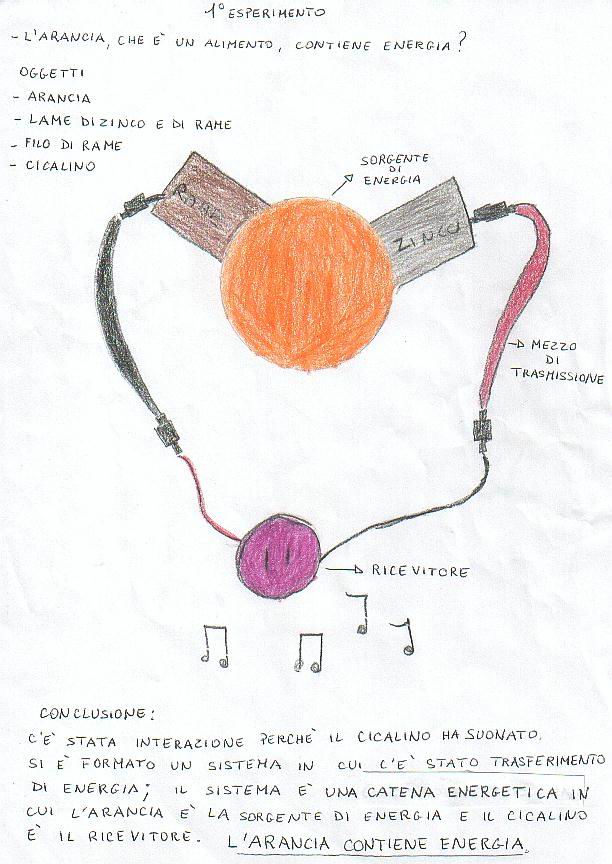 1° ESPERIMENTO
- L'ARANCIA, CHE È UN ALIMENTO, CONTIENE ENERGIA?
OGGETTI
- ARANCIA
- LAME DI ZINCO E DI RAME
- FILO DI RAME
- CICALINO
SORGENTE
DI
ENERGIA
RAME
ZINCO
MEZZO
DI
TRASMISSIONE
RICEVITORE
CONCLUSIONE:
C'È STATA INTERAZIONE PERCHÈ IL CICALINO HA SUONATO.
SI È FORMATO UN SISTEMA IN CUI C'È STATO TRASFERIMENTO
DI ENERGIA; IL SISTEMA È UNA CATENA ENERGETICA IN
CUI L'ARANCIA È LA SORGENTE DI ENERGIA E IL CICALINO
È IL RICEVITORE. L'ARANCIA CONTIENE ENERGIA.